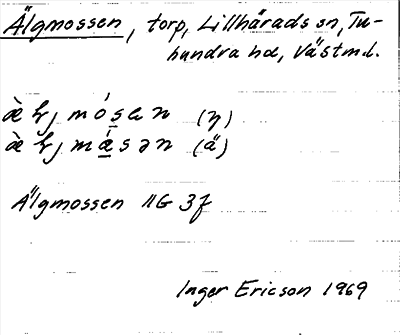 Älgmossen, torp, Lillhärads sn, Tu-
hundra hd, Västml.
(y)
(ä)
Älgmossen 11G 3f
Inger Ericson 1969